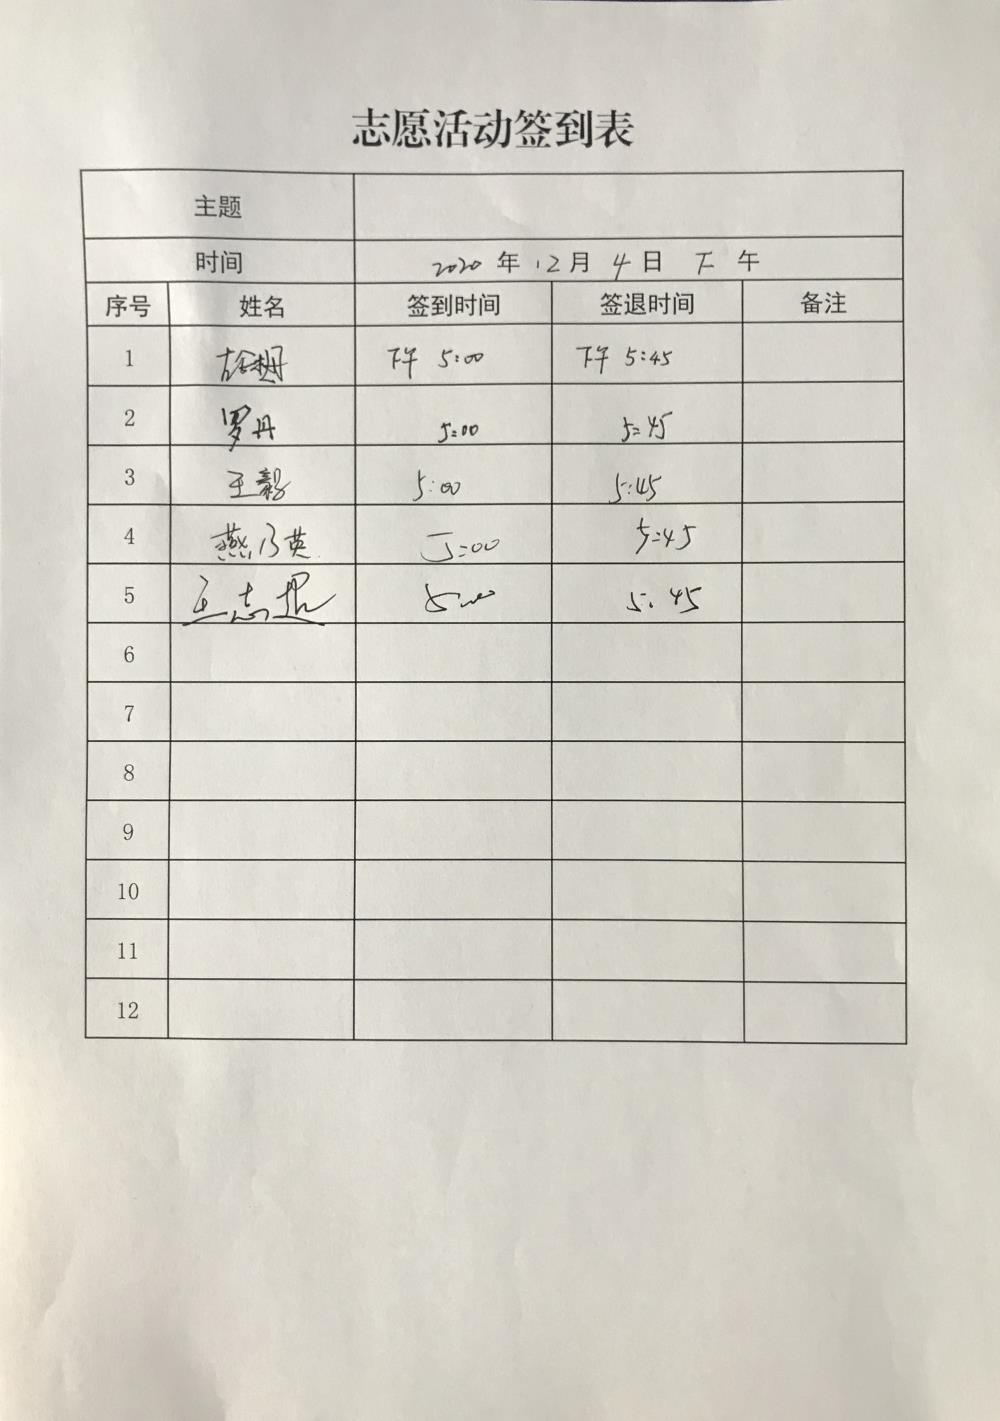 志愿活动签到表
主题
时间 2020 年 12 月 4 日 下 午
序号 姓名 签到时间 签退时间 备注
1 下午 5:00 下午 5:45
2 罗丹 5:00 5:45
3 王毅 5:00 5:45
4 燕乃英 5:00 5:45
5 王志 5:00 5:45
6
7
8
9
10
11
12